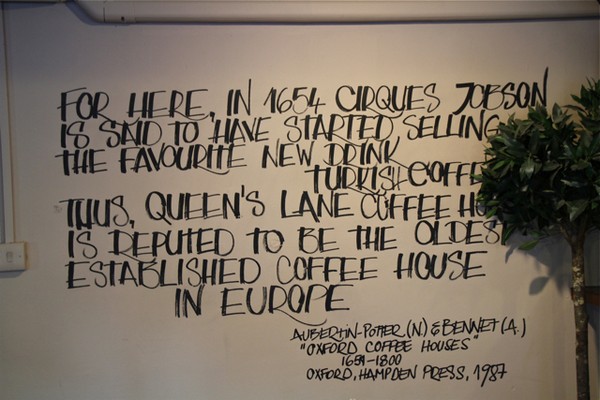 FOR HERE, IN 1654 CIRQUES JOBSON
IS SAID TO HAVE STARTED SELLING
THE FAVOURITE NEW DRINK
TURKISH COFFE
THUS, QUEEN'S LANE COFFEE HO
IS REPUTED TO BE THE OLDEST
ESTABLISHED COFFEE HOUSE
IN EUROPE
AUBERTIN-POTTER (N) & BENNET (A.)
"OXFORD COFFEE HOUSES"
1651-1800
OXFORD, HAMPDEN PRESS, 1987